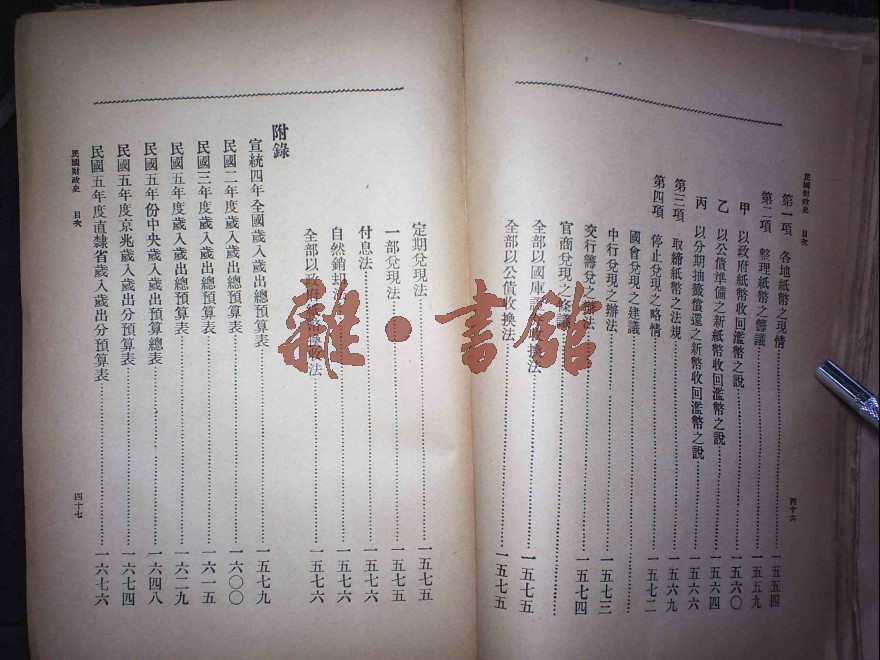 民國財政史 目次
第一項 各地紙幣之現情 一五五四
第二項 整理紙幣之籌議 一五五九
甲 以政府紙幣收回濫幣之說 一五六〇
乙 以公債準備之新紙幣收回濫幣之說 一五六四
丙 以分期抽籤償還之新幣收回濫幣之說 一五六六
第三項 取締紙幣之法規 一五六九
第四項 停止兌現之略情 一五七二
國會兌現之建議
中行兌現之辦法 一五七三
交行籌兌之辦法 一五七四
官商兌現之條議
全部以國庫證券收換法 一五七五
全部以公債收換法 一五七五
四十六
定期兌現法 一五七五
一部兌現法 一五七五
付息法 一五七六
自然銷却法 一五七六
全部以政府紙幣換收法 一五七六
附錄
宣統四年全國歲入歲出總預算表 一五七九
民國二年度歲入歲出總預算表 一六〇〇
民國三年度歲入歲出總預算表 一六一五
民國五年度歲入歲出總預算表 一六二九
民國五年份中央歲入歲出預算總表 一六四八
民國五年度京兆歲入歲出分預算表 一六七四
民國五年度直隸省歲入歲出分預算表 一六七六
民國財政史 目次
四十七
雜·書館